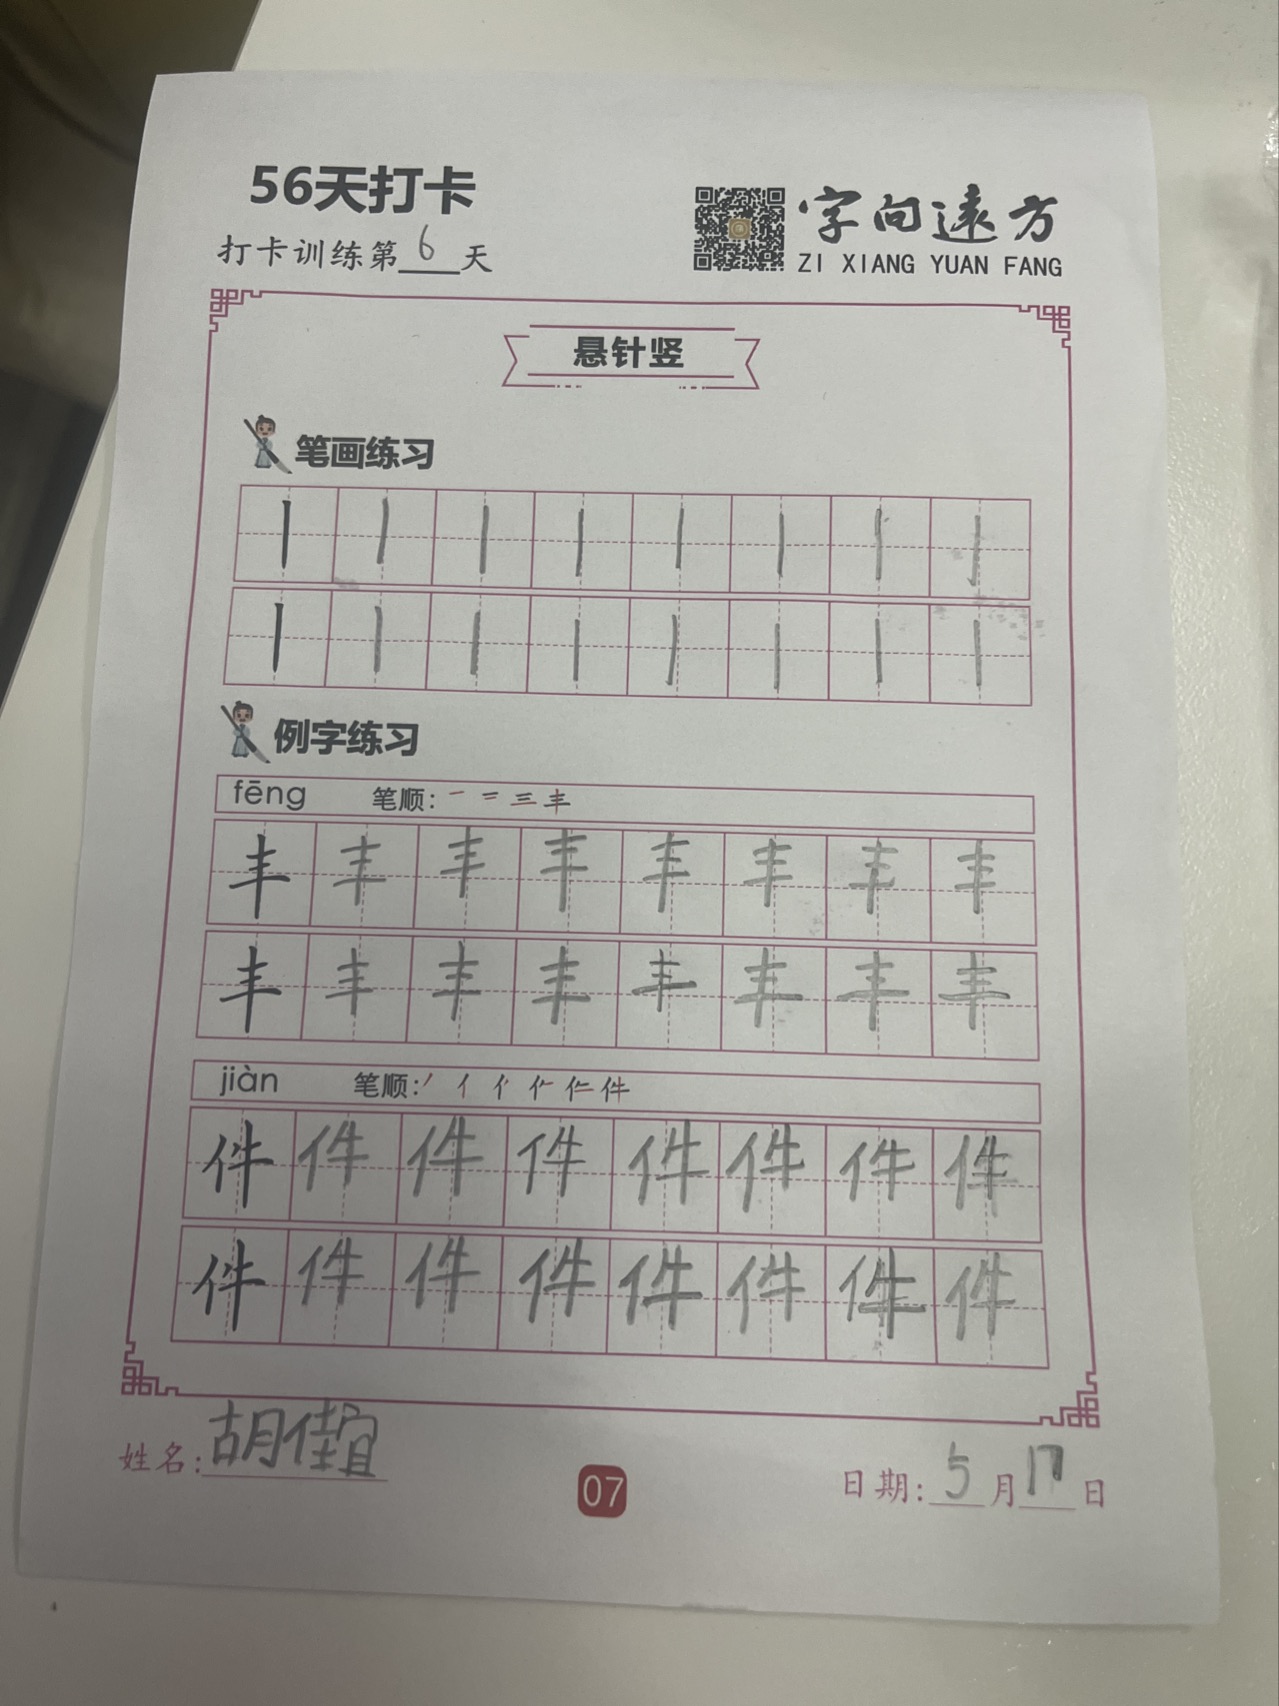 56天打卡
打卡训练第6天
字向远方
ZI XIANG YUAN FANG
悬针竖
笔画练习
丨丨丨丨丨丨丨丨
丨丨丨丨丨丨丨丨
例字练习
fēng 笔顺: 一 二 三 丰
丰丰丰丰丰丰丰丰
丰丰丰丰丰丰丰丰
jiàn 笔顺: 丿 亻 件
件件件件件件件件
件件件件件件件件
姓名:胡佳宜
07
日期:5月17日